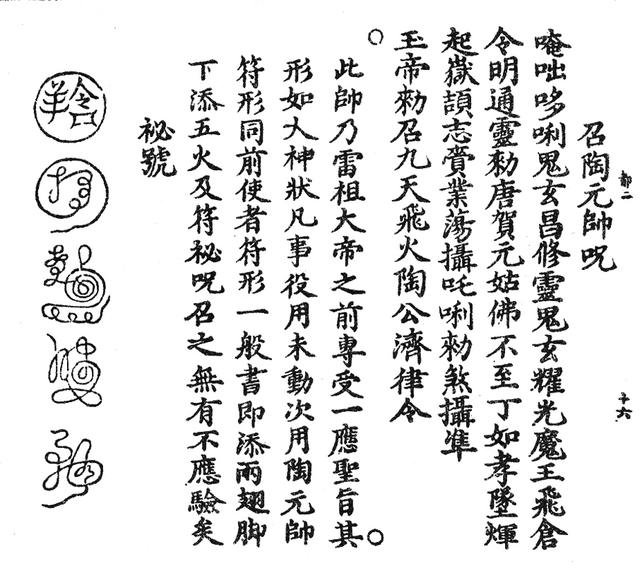 召陶元帥呪
唵咄哆唎鬼玄昌修靈鬼玄耀光魔王飛倉
令明通靈勑唐賀元姑佛不至丁如孝墜煇
起嶽頡志賷業蕩攝吒唎勑煞攝準
玉帝勑召九天飛火陶公濟律令
此帥乃雷祖大帝之前專受一應聖旨其
形如人神狀凡事役用未動次用陶元帥
符形同前使者符形一般書即添兩翅脚
下添五火及符祕呪召之無有不應驗矣
祕號
十六